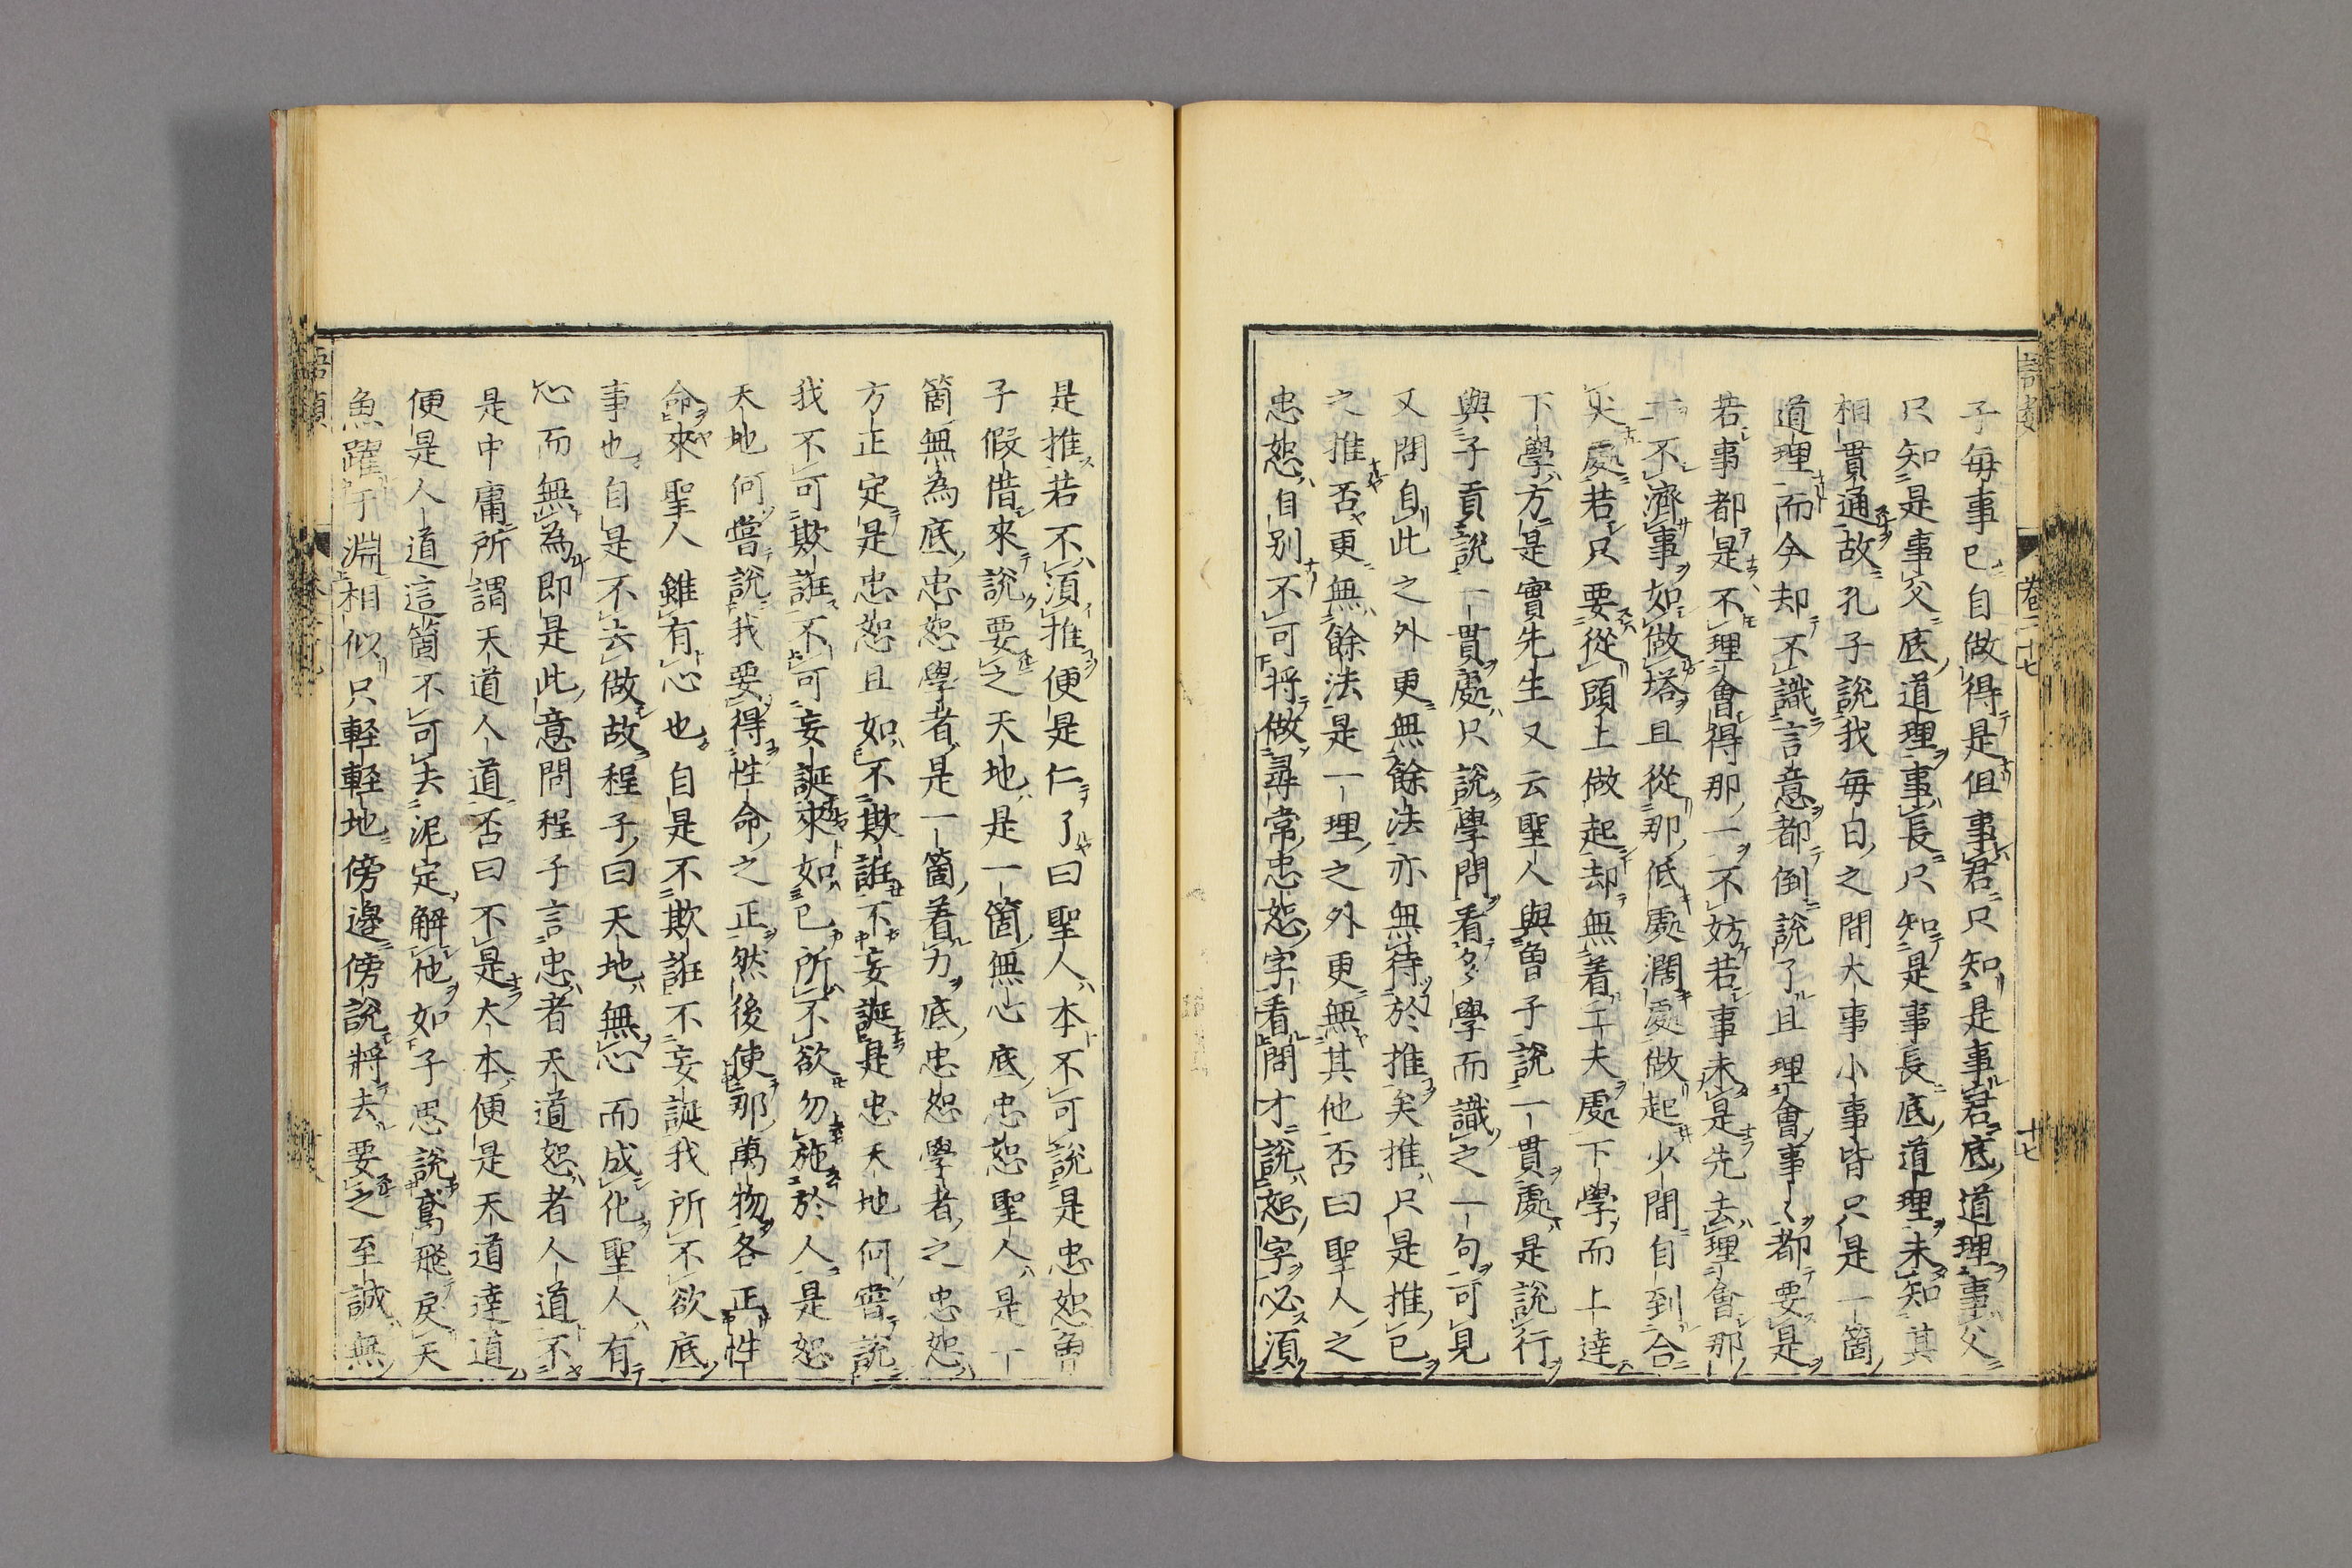 子毎事已自做得是但事君只知是事君底道理事父
只知是事父底道理事長只知是事長底道理未知其
相貫通故孔子説我毎日之間大事小事皆只是一箇
道理而今却不識言意都倒説了且理會事〻都要是
若事都是不理會得那一不妨若事未是先去理會那
一不濟事如做塔且從那低處濶處做起少間自到合
尖處若只要從頭上做起却無着工夫處下學而上達
下學方是實先生又云聖人與曾子説一貫處是説行
與子貢説一貫處只説學問看多學而識之一句可見
又問自此之外更無餘法亦無待於推矣推只是推已
之推否更無餘法是一理之外更無其他否曰聖人之
忠恕自別不可將做尋常忠恕字看問才説恕字必須
是推若不須推便是仁了曰聖人本不可説是忠恕曾
子假借來説要之天地是一箇無心底忠恕聖人是一
箇無為底忠恕學者是一箇着力底忠恕學者之忠恕
方正定是忠恕且如不欺誑不妄誕是忠天地何嘗説
我不可欺誑不可妄誕來如已所不欲勿施於人是恕
天地何嘗説我要得性命之正然後使那萬物各正性
命來聖人雖有心也自是不欺誑不妄誕我所不欲底
事也自是不去做故程子曰天地無心而成化聖人有
心而無為即是此意問程子言忠者天道恕者人道不
是中庸所謂天道人道否曰不是大本便是天道達道
便是人道這箇不可去泥定解他如子思説鳶飛戻天
魚躍于淵相似只軽軽地傍邊傍説將去要之至誠無
卷二十七
十七